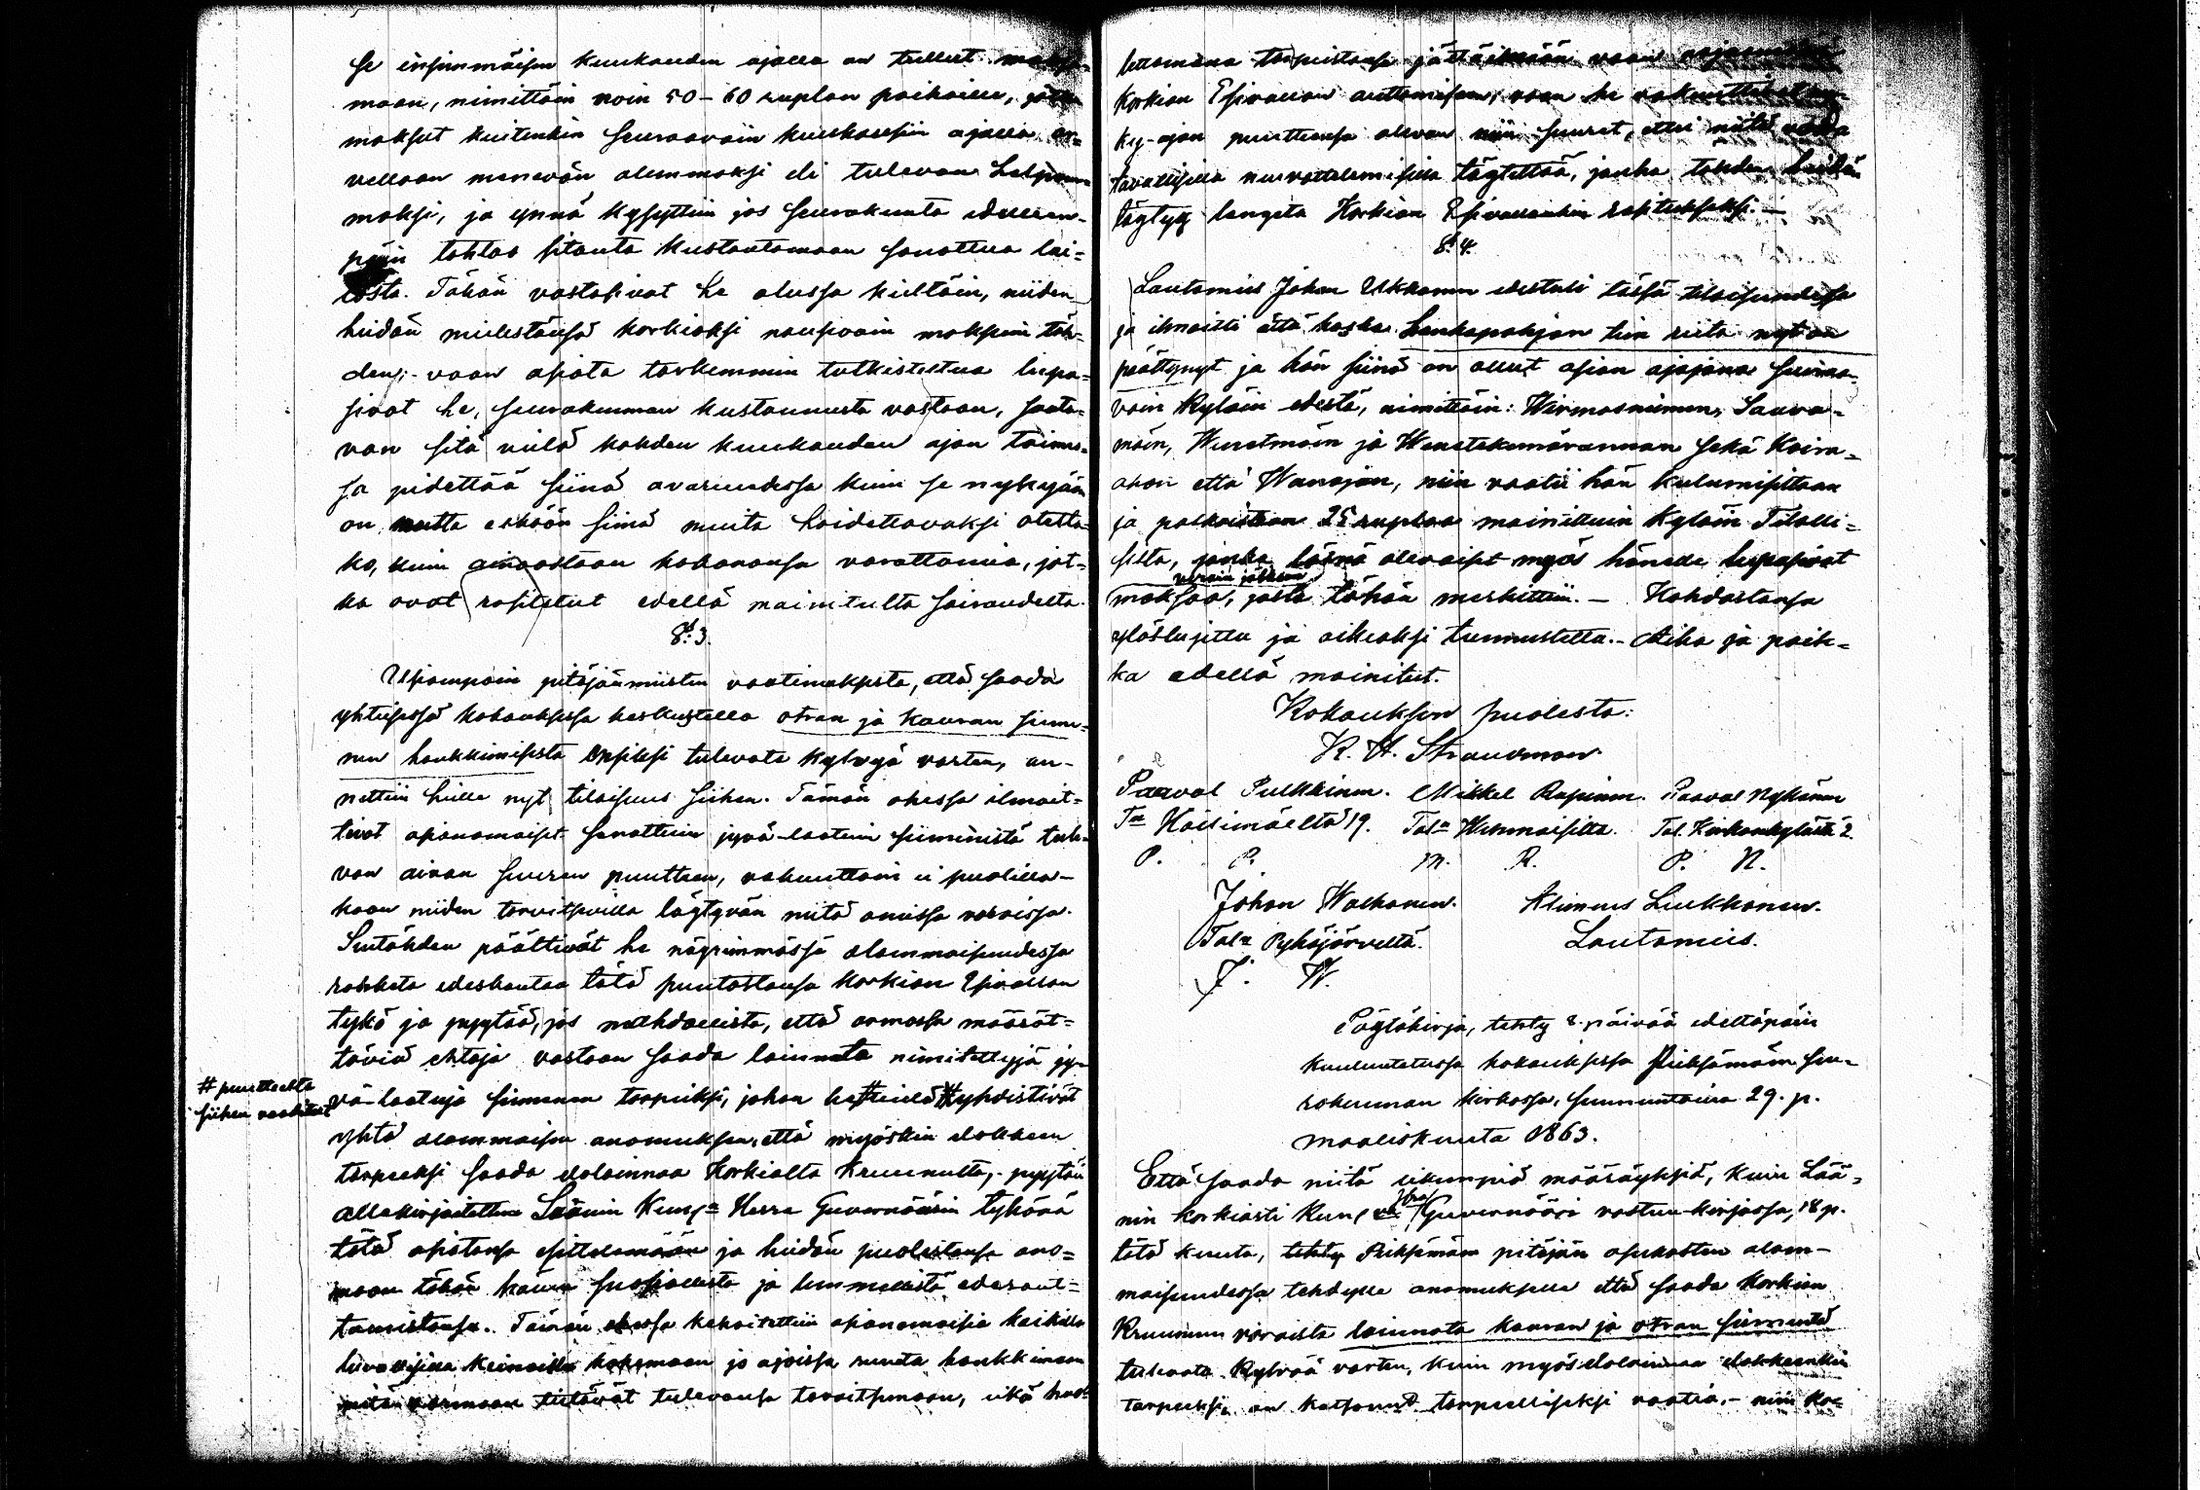 se ensimmäisen kuukauden ajalla on tullut
maan, nimittäin noin 50-60 ruplan paikoille,
maksut kuitenkin seuraavain kuukausiin ajalla ar=
vellaan menevän alemmaksi eli tulevan
maksi, ja ynnä kysyttiin jos seurakunta edellen-
päin tahtoo sitouta kustantamaan sanottua lai=
tosta. Tähän vastasivat he alussa kieltäin, niiden
heidän mielestänsä korkiaksi nousivain maksuin täh=
den;- vaan asiata tarkemmin tutkisteltua lupa=
sivat he, seurakunnan kustannusta vastaan, saata=
van sitä vielä kahden kuukauden ajan toimes=
sa pidettää siinä avaruudessa kuin se nykyään
on mutta eiköön siinä muita hoidettavaksi otetta=
ko, kuin ainoastaan kokonansa varattomia, jot=
ka ovat rasitetut edellä mainitulta sairaudelta.
§ 3.
Useampain pitäjäämiesten vaatimuksesta, että saada
yhteisessä kokouksessa keskustella otran ja kauran sieme=
nen hankkimisesta tulevata kylvyä varten, an-
nettiin heille nyt tilaisuus siihen. Tämän ohessa ilmoit=
tivat asianomaiset sanottuin jyvä-laatuin siemenistä tule=
van aivan suuren puutteen, vakuuttain ei puolilla-
kaan niiden tarvitsevilla löytyvän niitä omissa varoissa.
Sentähden päättivät he nöyrimmässä alammaisuudessa
rohkeata edeskantaa tätä puutostansa Korkian Esivallan
tykö ja pyytää, jos mahdollista, että armossa määrät=
täviä ehtoja vastaan saada lainata nimitettyjä jy-
vä-laatuja siemenen tarpeiksi, johon he # vielä yhdistivät
# puutteelta
siihen vaaditut
yhtä alammaisen anomuksen, että myöskin elokkeen
tarpeeksi saada elolainnaa Korkialta Kruunulta,- pyytäin
allekirjoitettua Läänin Herra Guvernöörin tykönä
tätä asiatansa esittelemään ja heidän puolestansa ano=
maan tähän hänen suosiollista ja lemmellistä edesaut=
tamistansa. Tämän ohessa kehoitettiin asianomaisia kaikilla
luvallisilla keinoilla kokemaan jo ajoissa ruveta hankkimaan
mitä varmaan tietävät tulevansa tarvitsemaan, eikä huo-
lettomana toopeistansa jättäikään vaan
Korkian Esivallan auttamiseen, vaan he vakuuttivat ny-
ky-ajan puutteensa olevan niin suuret, ettei niitä
tavallisilla neuvottelemisilla täytettää, jonka tähden heidän
täytyy langeta Korkian Esivallankin rasitukseksi.-
§ 4.
Lautamies Johan Ukkonen edestuli tässä tilaisuudessa
ja ilmoitti että koska Hankapohjan tien riita nyt on
päättynyt ja hän siinä on ollut asian ajajana seuraa=
vain kyläin edestä, nimittäin: Wirmasniemen, Saura=
mäin, ja sekä Koira=
ahon että Wanajan, niin vaatii hän kulumisistaan
ja palkastaan 25 ruplaa mainittuin kyläin Tilalli=
silta, jonka läsnä olevaiset myös hänelle lupasivat
veroin jälkeen
maksaa, josta tähän merkittiin.- Kohdastansa
ylösluettu ja oikeaksi tunnustettu.- Aika ja paik=
ka edellä mainitut.
Kokouksen puolesta:
K. H. Strandman.
Paaval Pulkkinen. Mikkel Rupinen. Paaval Nykänen
Tal. Häsimäeltä 19. Tal. Tal. Kirkonkylästä 2.
P. P. M. R. P. N.
Johan Walkonen. Klemens Liukkonen.
Tal. Pyhäjärveltä. Lautamies.
J. W.
Pöytäkirja, tehty 8. päivää edeltäpäin
kuulutetussa kokouksessa Pieksämäen seu=
rakunnan kirkossa, sunnuntaina 29. p.
maaliskuuta 1863.
Että saada niitä likempiä määräyksiä, kuin Lää=
nin korkiasti Kun Hra Guvernööri vastuu-kirjassa, 18 p.
tätä kuuta, tehty Pieksämäen pitäjän asukasten alam-
maisuudessa tehdylle anomukselle että saada Korkian
Kruunun varoista lainata kauran ja otran siementä
tulevata kylvöä varten, kuin myös elolainaa elokkeenkin
tarpeeksi, on katsonut tarpeelliseksi vaatia,- niin ko=